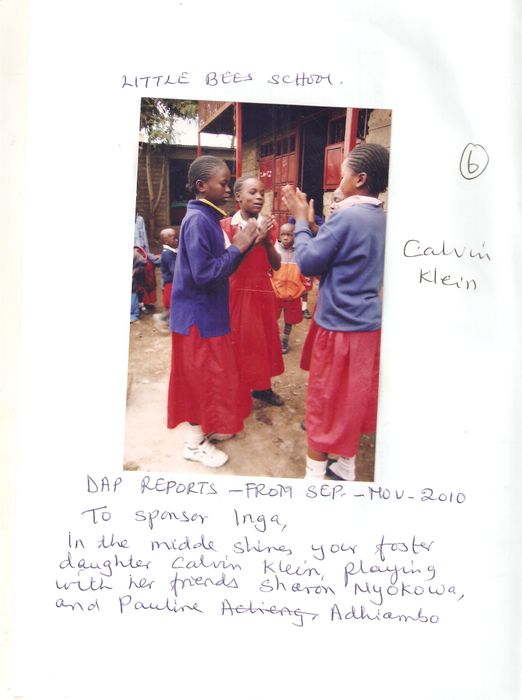 LITTLE BEES SCHOOL.
6
Calvin
Klein
DAP REPORTS - FROM SEP. - NOV - 2010
To sponsor Inga,
In the middle shines your foster
daughter Calvin Klein, playing
with her friends Sharon Nyokowa,
and Pauline Achieng, Adhiambo